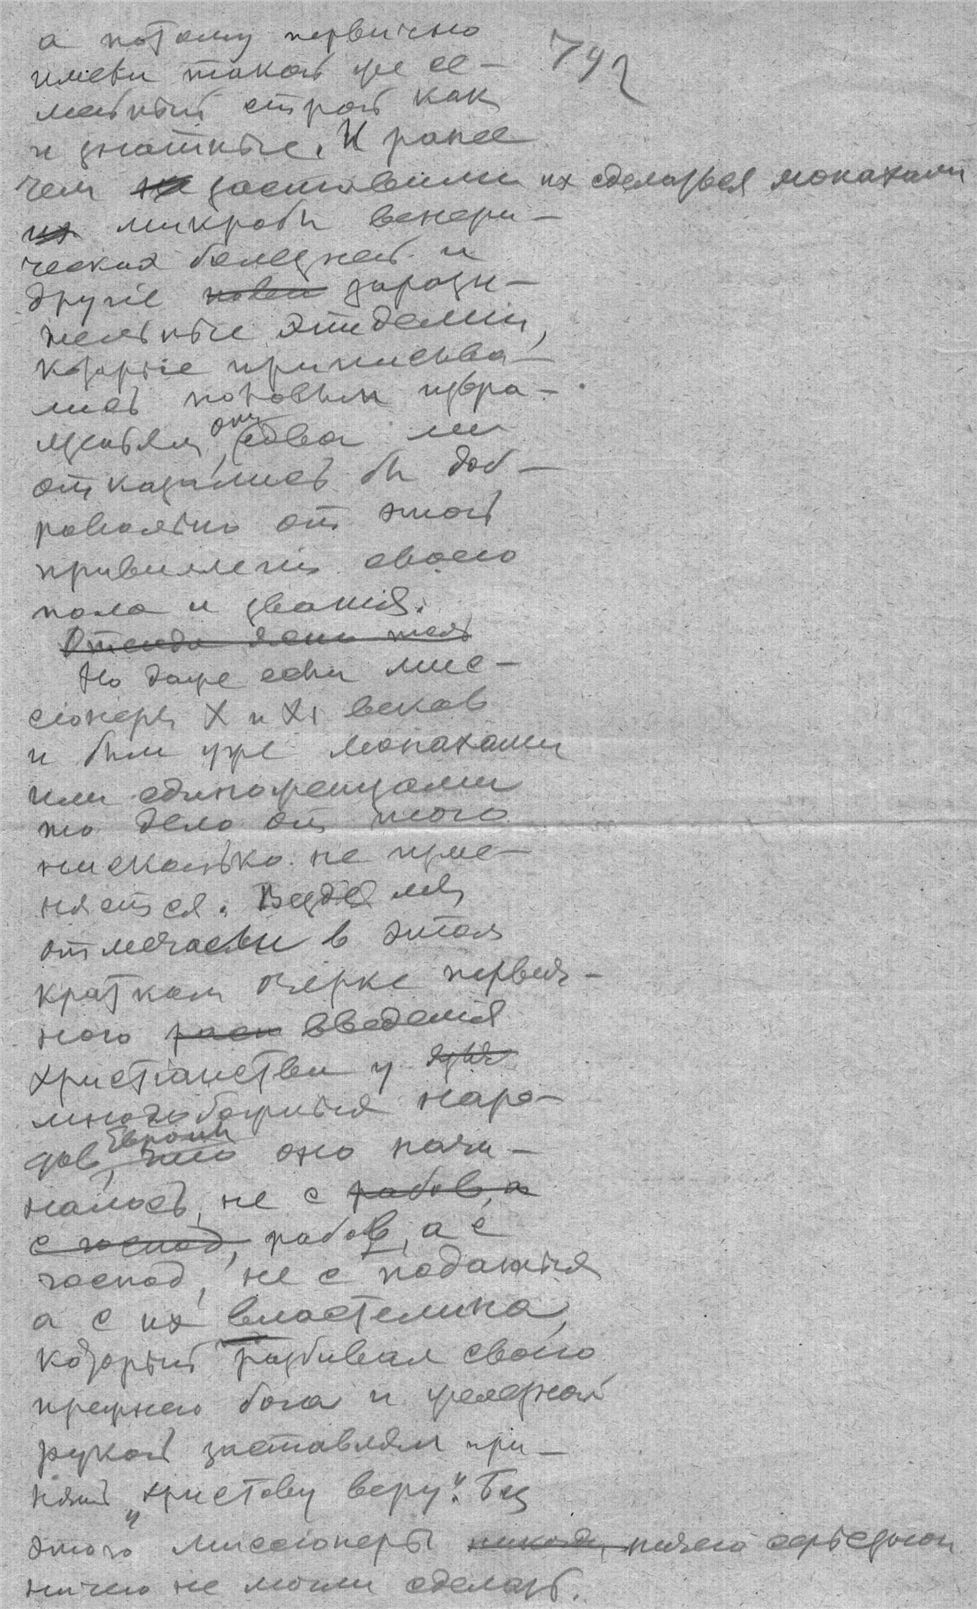 792
а потому первично
имели такой же се-
мейный строй как
и знатные. И ранее
чем заставили их сделаться монахами
микробы венери-
ческих болезней и
другие зарази-
тельные эпидемии,
которые приписыва-
лись половым извра-
щеньям, они едва ли
отказались бы доб-
ровольно от этой
привилегии своего
пола и звания.
Но даже если мис-
сіонеры X и XI веков
и были уже монахами
или единоженцами
то дело от этого
нисколько не изме-
няется. Везде мы
отмечаем в этом
кратком очерке первич-
ного введенія
христіанства у
многобожных наро-
дов Европы, что оно начи-
налось, не с рабов, а
с господ, рабов, а с
господ, не с поданных
а с их властелина,
который разбивал своего
прежнего бога и железной
рукой заставлял при-
нять „христову веру". Без
этого миссіонеры ничего серьезного
ничего не могли сделать.